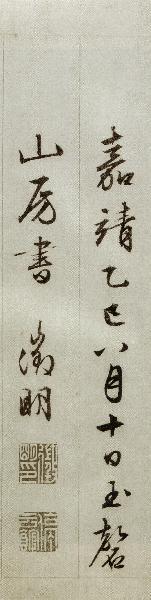 嘉靖乙巳八月十日玉磬
山房書 徵明